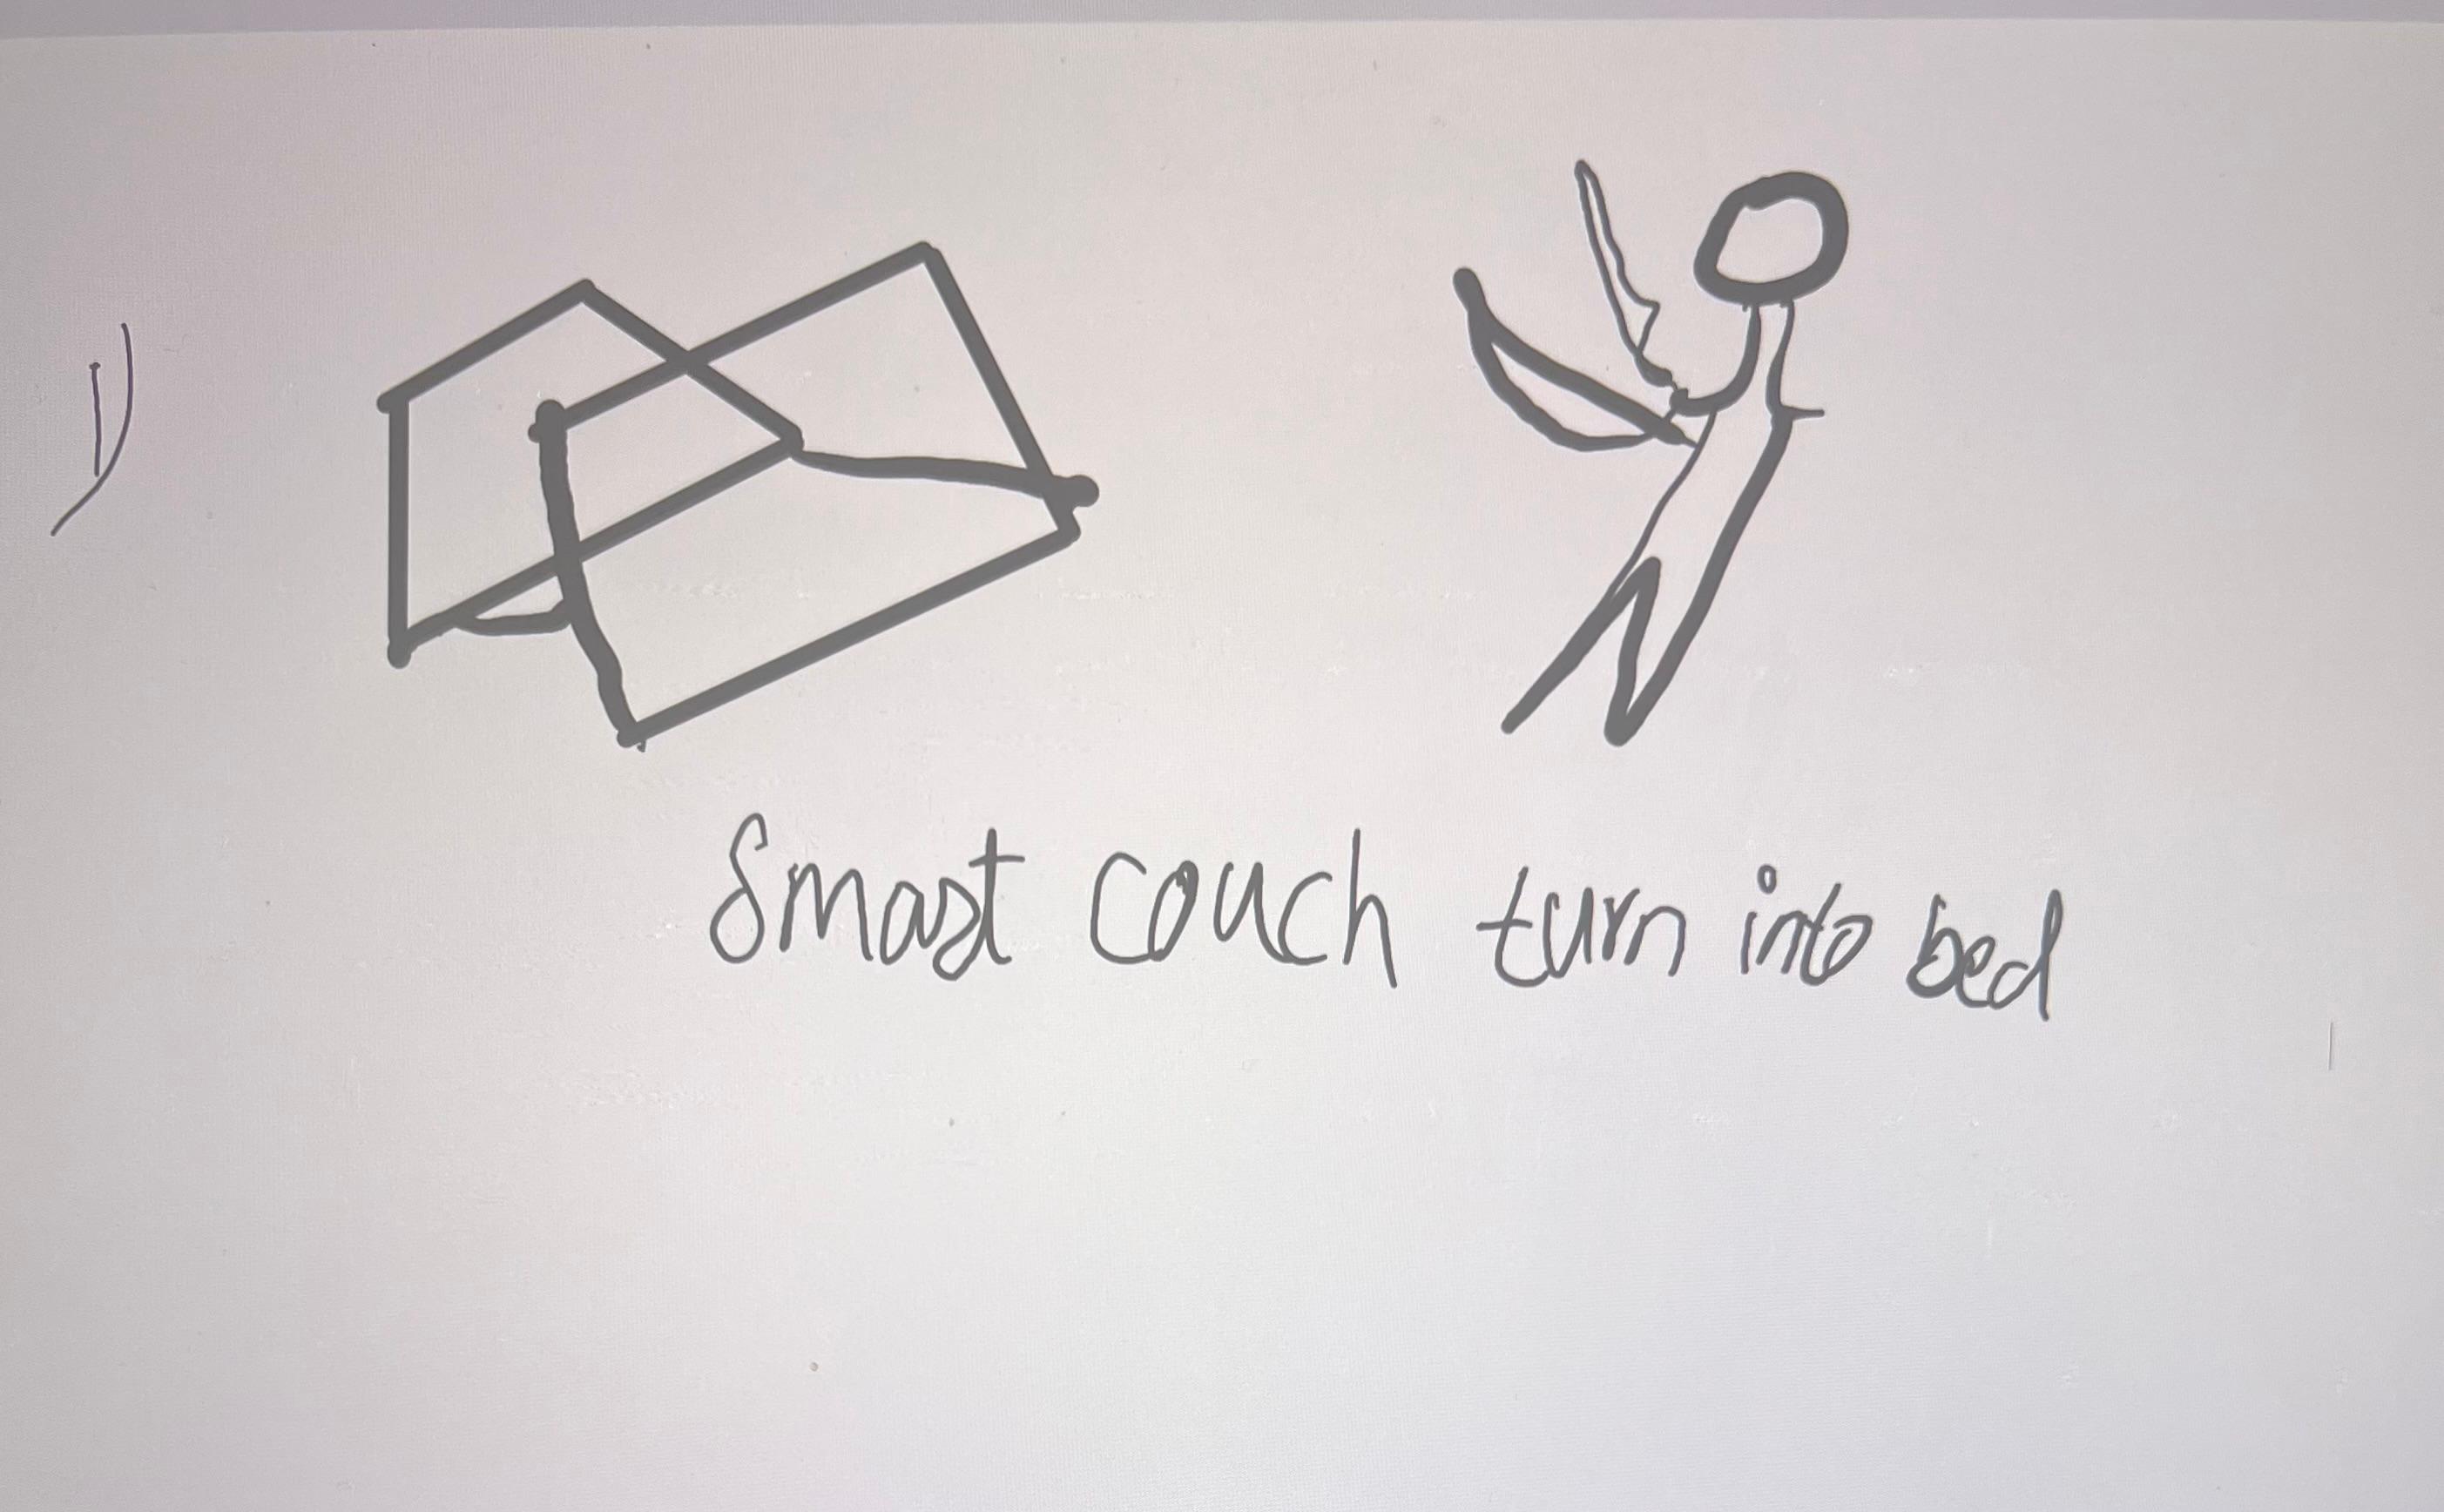 1)
Smart couch turn into bed